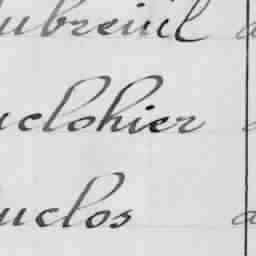 ubreuil a
uclohier a
uclos a